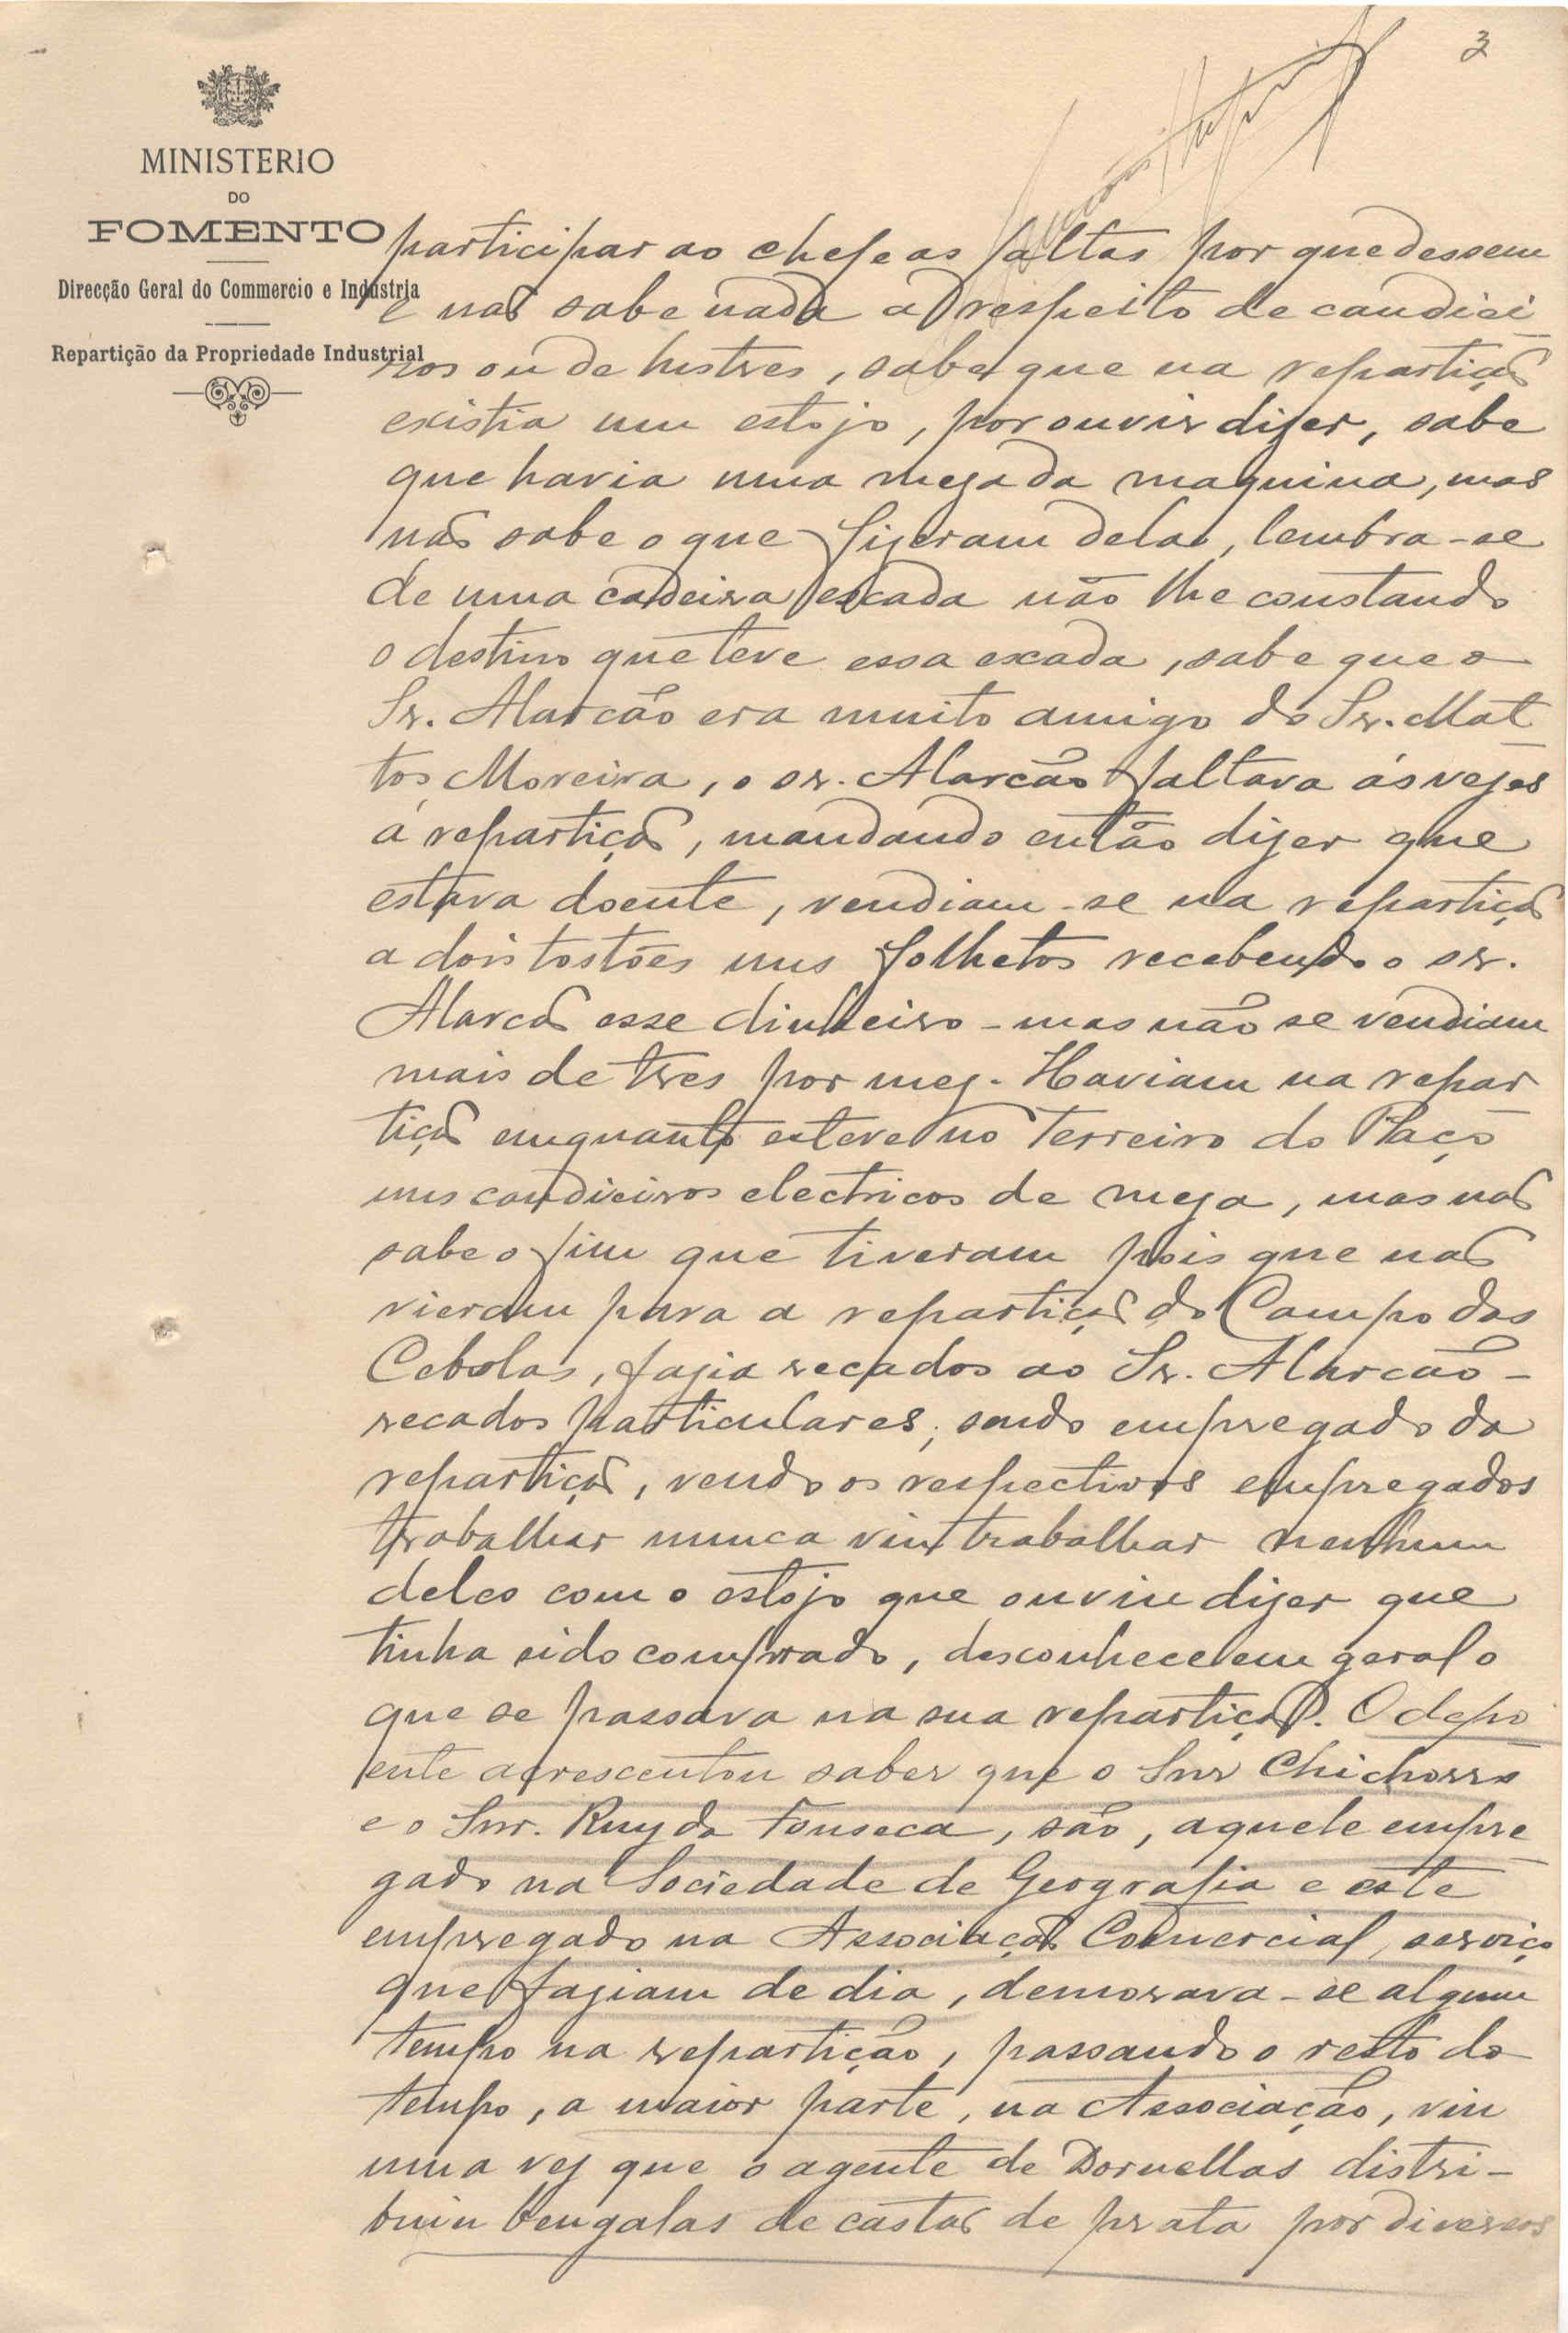 3
MINISTERIO
DO
FOMENTO
Direcção Geral do Commercio e Industria
Repartição da Propriedade Industrial
participar ao chefe as faltas por que dessem
e não sabe nada a respeito de candiei
ros ou de lustres, sabe que na repartição
existia um estojo, por ouvir dizer, sabe
que havia uma meza da maquina, mas
não sabe o que fizeram dela, lembra-se
de uma cadeira escada não lhe constando
o destino que teve essa escada, sabe que o
Sr. Alarcão era muito amigo do Sr. Mat
tos Moreira, o sr. Alarcão faltava ás vezes
á repartição, mandando então dizer que
estava doente, vendiam-se na repartição
a dois tostões uns folhetos recebendo o sr.
Alarcão esse dinheiro - mas não se vendiam
mais de tres por mez. Haviam na repar
tição emquanto esteve no Terreiro do Paço
uns candieiros electricos de meza, mas não
sabe o fim que tiveram pois que não
vieram para a repartição do Campo das
Cebolas, fazia recados ao Sr. Alarcão -
recados particulares, sendo empregado da
repartição, vendo os respectivos empregados
trabalhar nunca viu trabalhar nenhum
deles com o estojo que ouviu dizer que
tinha sido comprado, desconhece em geral o
que se passava na sua repartição. O depo
ente acrescentou saber que o Snr Chichorro
e o Snr. Ruy da Fonseca, são, aquele empre
gado na Sociedade de Geografia e este
empregado na Associação Comercial, serviço
que faziam de dia, demorava-se algum
tempo na repartição, passando o resto do
tempo, a maior parte, na Associação, viu
uma vez que o agente de Dornellas distri-
buiu bengalas de castão de prata por diversos